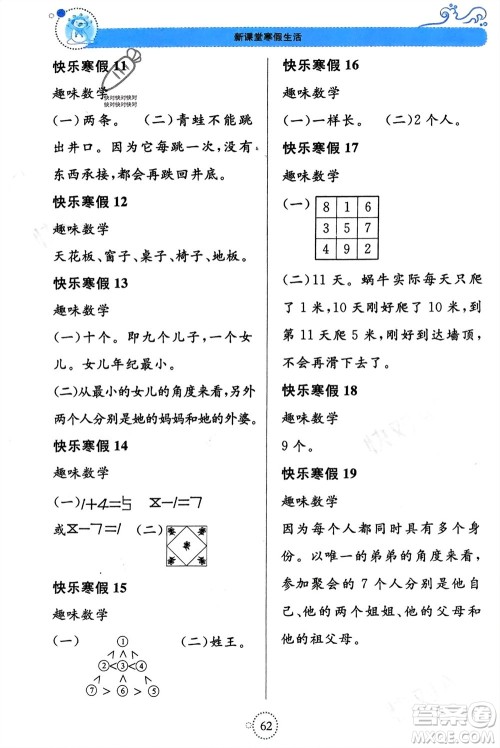 新课堂寒假生活
快乐寒假 11
趣味数学
(一)两条。 (二)青蛙不能跳
出井口。因为它每跳一次,没有
东西承接,都要再跌回井底。
快乐寒假 12
趣味数学
天花板、窗子、桌子、椅子、地板。
快乐寒假 13
趣味数学
(一)十个。即九个儿子,一个
女儿。女儿年纪最小。
(二)从最小的女儿的角度来看,另外
两个人分别是她的妈妈和她的外婆。
快乐寒假 14
趣味数学
(一)1+4=5 8-1=7
或8-7=1 (二)
快乐寒假 15
趣味数学
(一) (二)姓王。
①
②<③<④
⑦>⑥>⑤
快乐寒假 16
趣味数学
(一)一样长。 (二)2 个人。
快乐寒假 17
趣味数学
(一)
8 1 6
3 5 7
4 9 2
(二)11 天。蜗牛实际每天只爬
了 1 米,10 天刚好爬了 10 米,到
第 11 天爬 5 米,刚好到达墙顶,
不再下滑。
快乐寒假 18
趣味数学
9 个。
快乐寒假 19
趣味数学
因为每个人都同时具有多个身
份。以唯一的弟弟的角度来看,
参加聚会的 7 个人分别是他自
己、他的两个姐姐、他的父母和
他的祖父母。
62